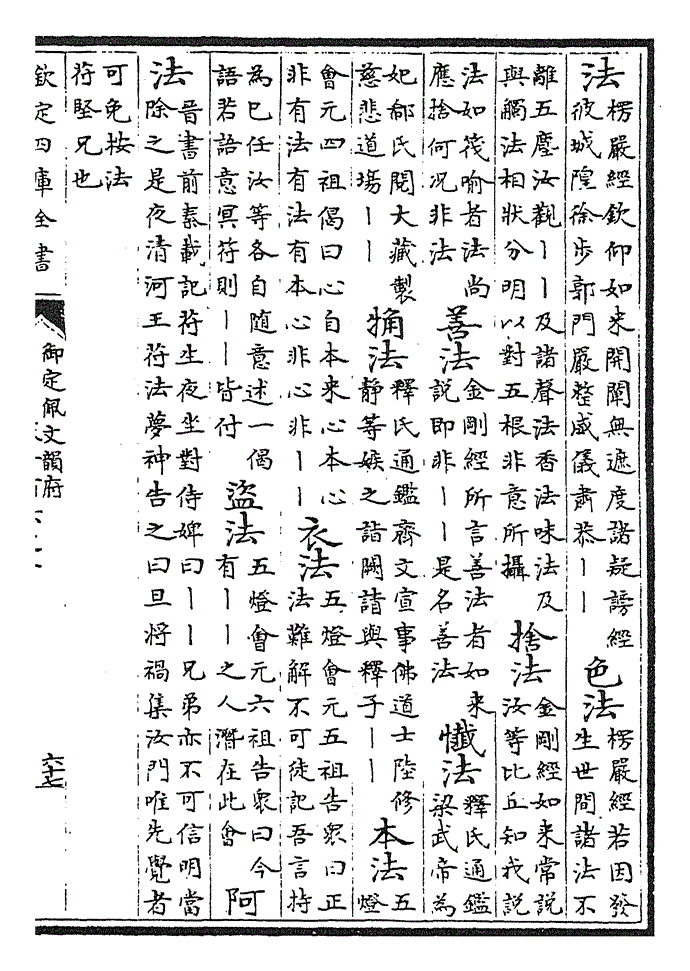 法
楞嚴經欽仰如來開闡無遮度諸疑謗經
彼城隍徐步郭門嚴整威儀肅恭丨丨
色法
楞嚴經若因發
生世間諸法不
離五塵汝觀丨丨及諸聲法香法味法及
與觸法相狀分明以對五根非意所攝
捨法
金剛經如來常說
汝等比丘知我說
法如筏喻者法尚
應捨何况非法
善法
金剛經所言善法者如來
說即非丨丨是名善法
懴法
釋氏通鑑
梁武帝為
妃郗氏閱大藏製
慈悲道塲丨丨
捔法
釋氏通鑑齊文宣事佛道士陸修
靜等嫉之詣闕請與釋子丨丨
本法
五
燈
會元四祖偈曰心自本來心本心
非有法有法有本心非心非丨丨
衣法
五燈會元五祖告衆曰正
法難解不可徒記吾言持
為已任汝等各自隨意述一偈
語若語意冥符則丨丨皆付
盜法
五燈會元六祖告衆曰今
有丨丨之人濳在此會
阿
法
晉書前秦載記苻生夜坐對侍婢曰丨丨兄弟亦不可信明當
除之是夜清河王苻法夢神告之曰旦將禍集汝門唯先覺者
可免按法
苻堅兄也
欽定四庫全書
御定佩文韻府
六十七